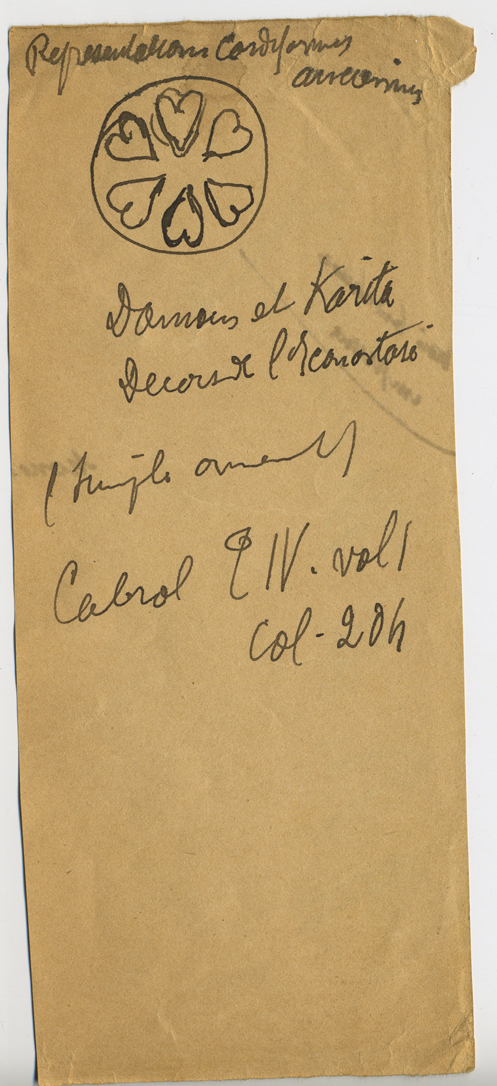 Representations Cordiformes
anciennes
Damous el Karita
Decors de l'Iconostase
(Simple ornement)
Cabrol T IV. vol 1
Col - 204